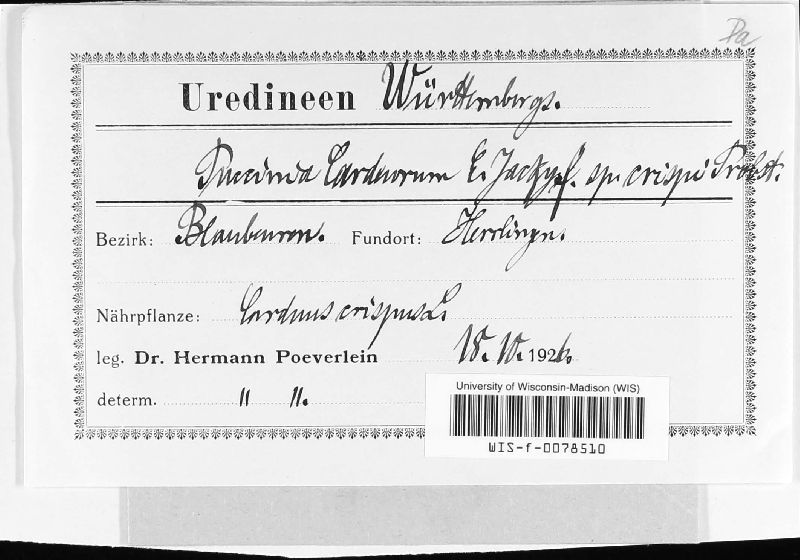 Pa
Uredineen Württembergs.
Puccinia Carduorum E. Jacky f. sp. crispi Probst.
Bezirk: Blaubeuren. Fundort: Herrlingen.
Nährpflanze: Carduus crispus L.
leg. Dr. Hermann Poeverlein 18. 10. 1926.
determ. " ".
University of Wisconsin-Madison (WIS)
WIS-f-0078510